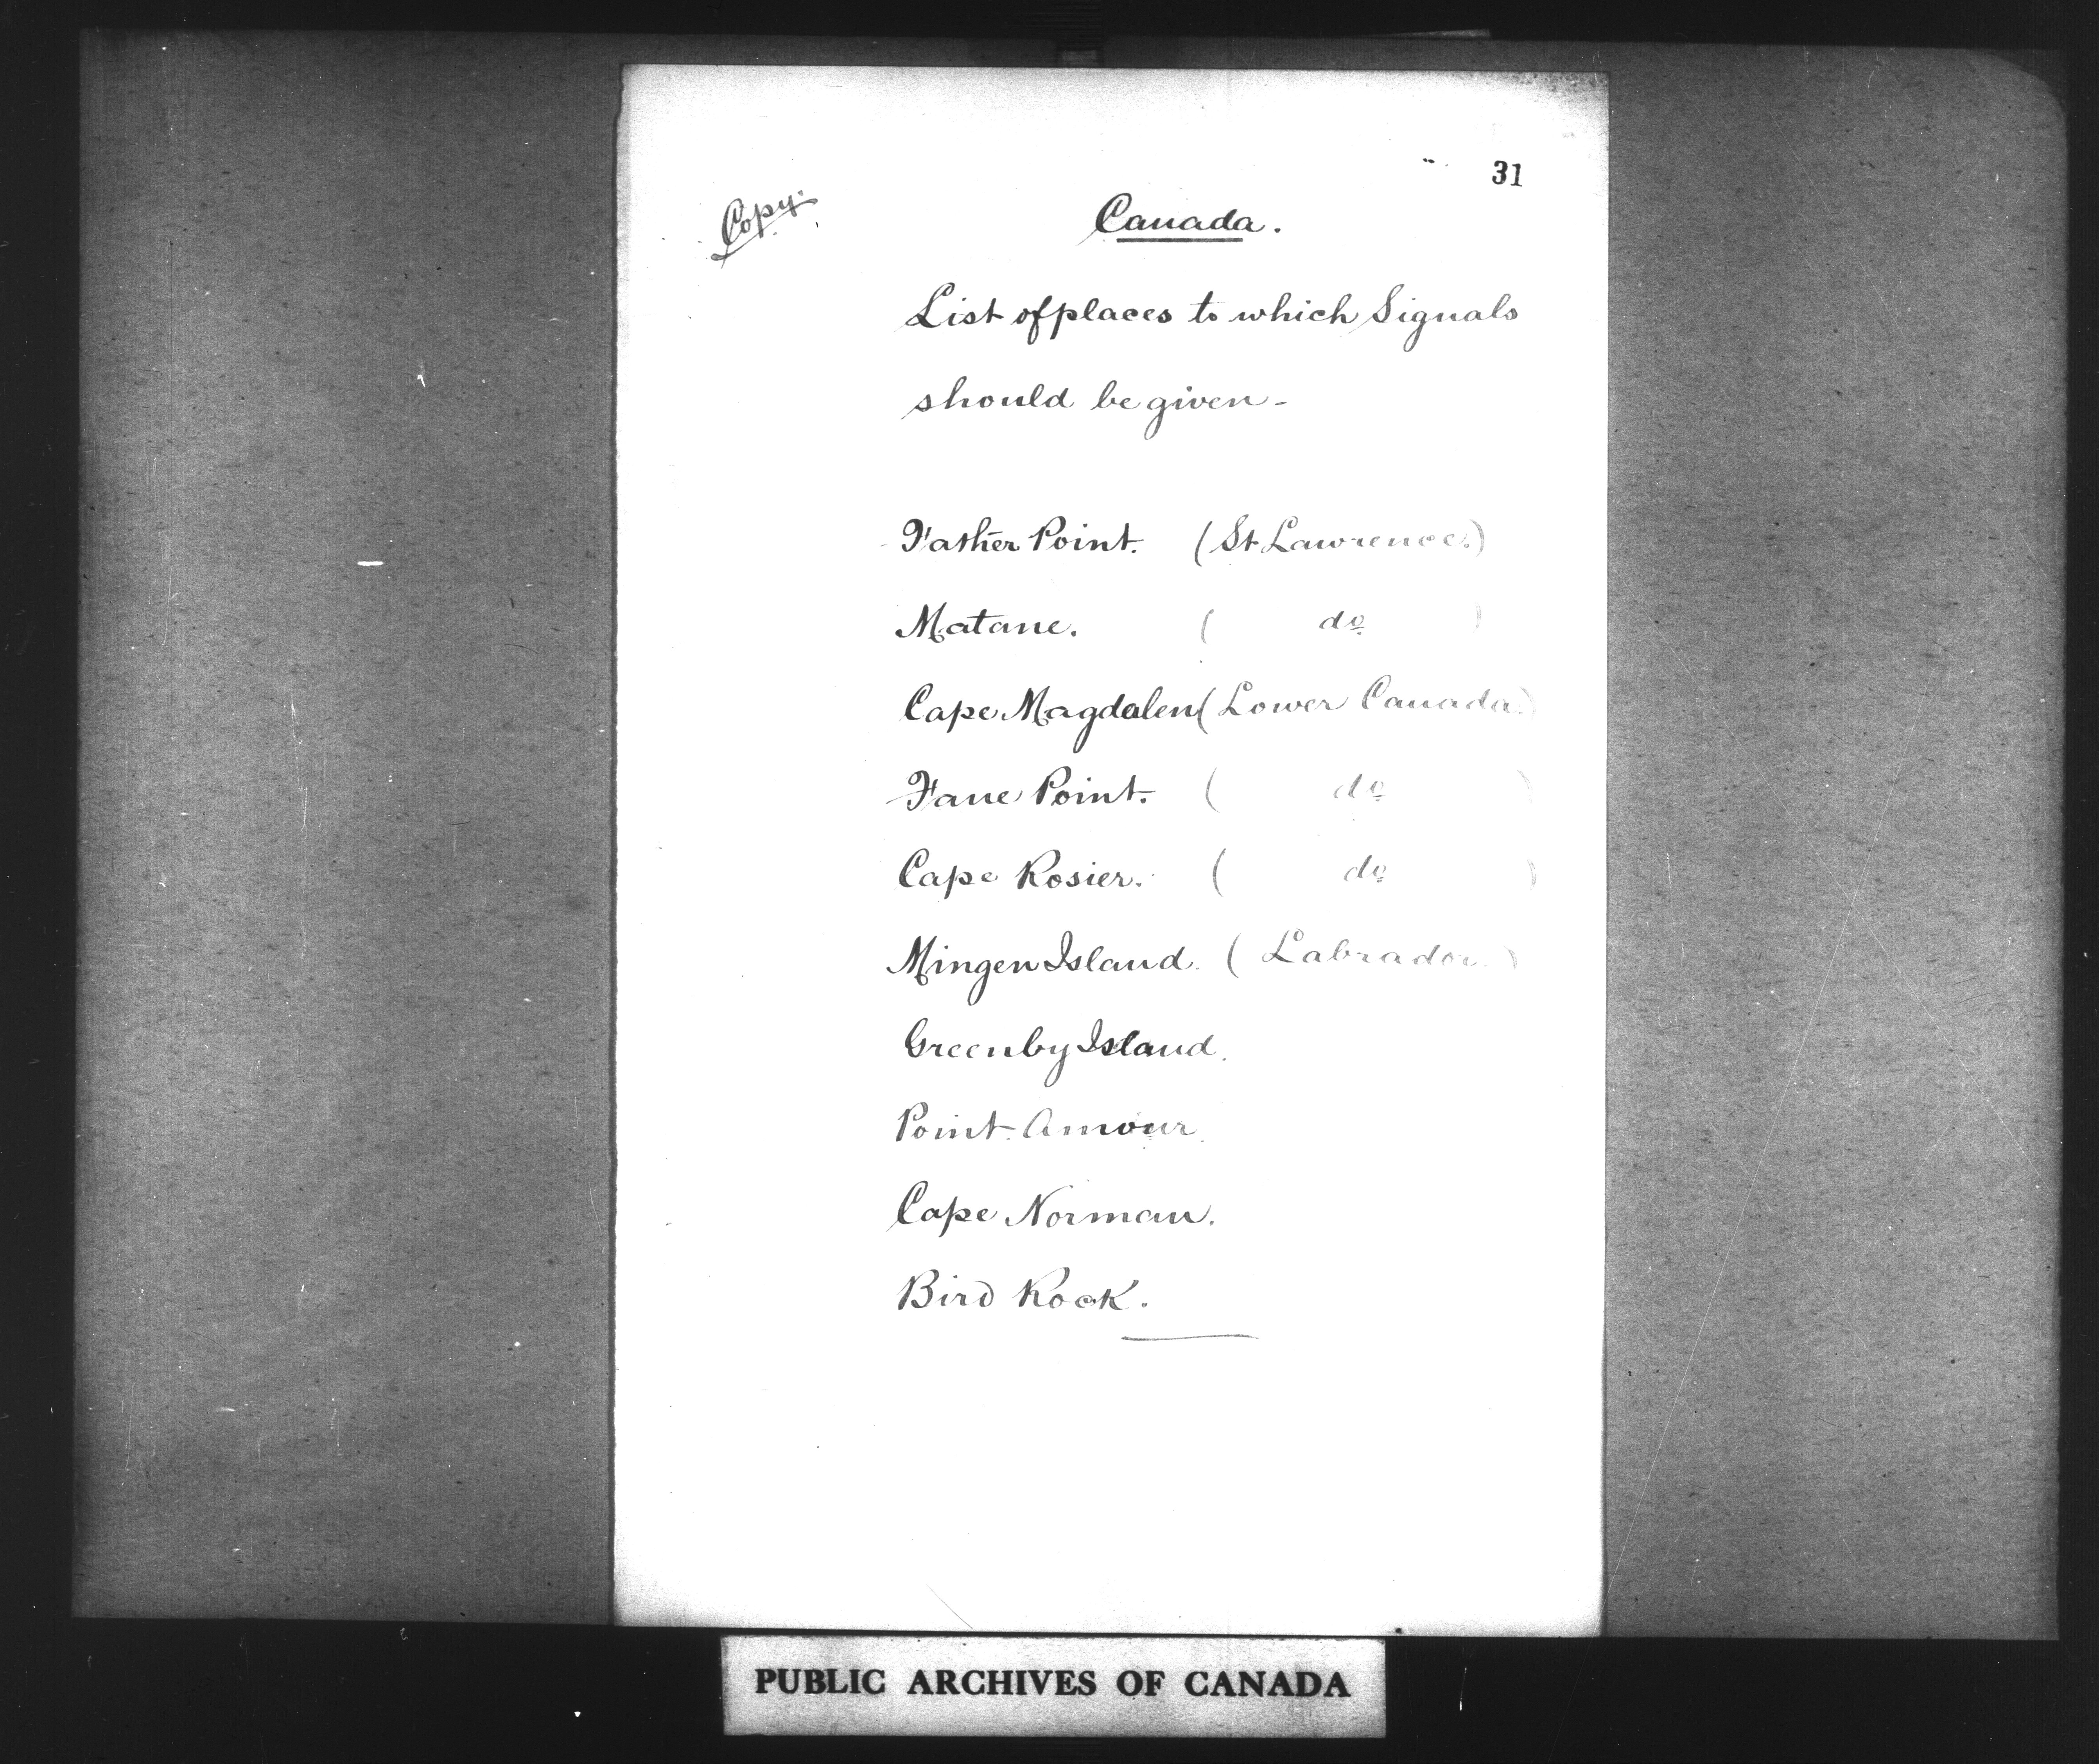 31
Copy.
Canada.
List of places to which Signals
should be given -
Father Point. (St Lawrence.)
Matane. ( do )
Cape Magdalen (Lower Canada.)
Fane Point. ( do )
Cape Rosier. ( do )
Mingen Island. ( Labrador. )
Greenby Island.
Point Amour.
Cape Norman.
Bird Rock.
PUBLIC ARCHIVES OF CANADA